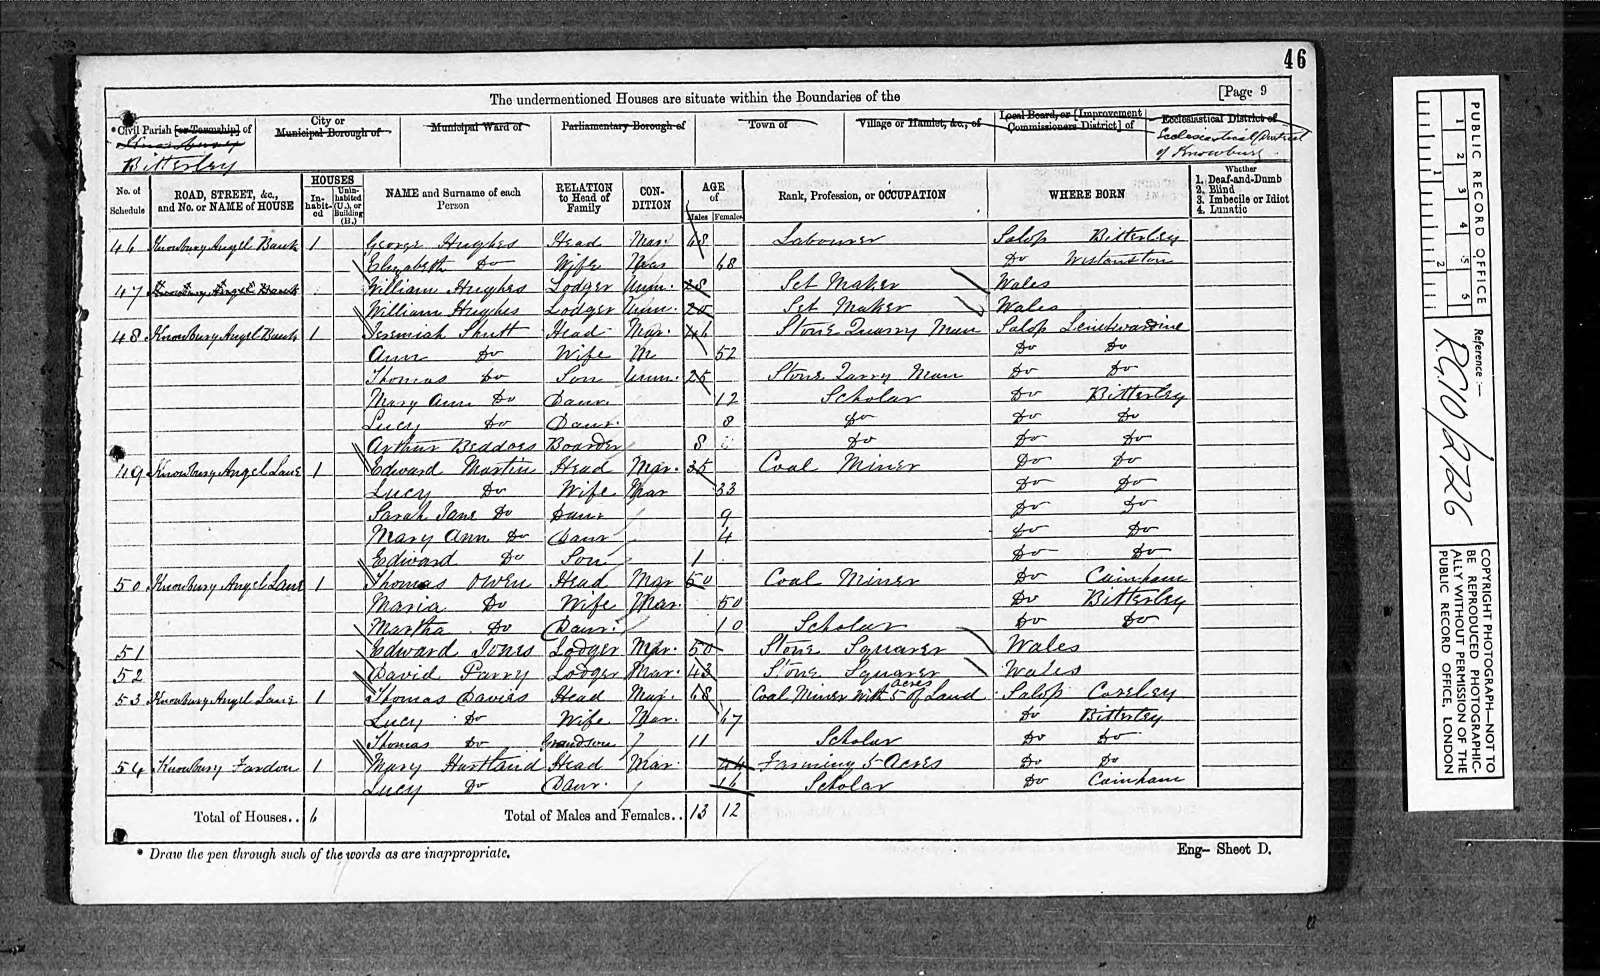 46
The undermentioned Houses are situate within the Boundaries of the [Page 9
*Civil Parish [or Township] of City or Municipal Borough of Municipal Ward of Parliamentary Borough of Town of Village or Hamlet, &c., of Local Board, or [Improvement Commissioners District] of Ecclesiastical District of
Bitterley Ecclesiastical District of Knowbury
No. of Schedule ROAD, STREET, &c., and No. or NAME of HOUSE HOUSES In-habit-ed Unin-habited (U.), or Building (B.) NAME and Surname of each Person RELATION to Head of Family CON-DITION AGE of Males Females Rank, Profession, or OCCUPATION WHERE BORN Whether 1. Deaf-and-Dumb 2. Blind 3. Imbecile or Idiot 4. Lunatic
46 Knowbury Angel Bank 1 George Hughes Head Mar. 68 Labourer Salop Bitterley
Elizabeth Do Wife Mar 68 Do Wistanston
47 Knowbury Angel Bank William Hughes Lodger Unm. 28 Set Maker Wales
William Hughes Lodger Unm. 20 Set Maker Wales
48 Knowbury Angel Bank 1 Jeremiah Shutt Head Mar. 46 Stone Quarry Man Salop Leintwardine
Ann Do Wife M 52 Do Do
Thomas Do Son Unm. 25 Stone Qarry Man Do Do
Mary Ann Do Daur. 12 Scholar Do Bitterley
Lucy Do Daur. 8 Do Do Do
Arthur Beddoes Boarder 8 Do Do Do
49 Knowbury Angel Lane 1 Edward Martin Head Mar. 35 Coal Miner Do Do
Lucy Do Wife Mar 33 Do Do
Sarah Jane Do Daur 9 Do Do
Mary Ann Do Daur 4 Do Do
Edward Do Son 1 Do Do
50 Knowbury Angel Lane 1 Thomas Owen Head Mar 50 Coal Miner Do Cainham
Maria Do Wife Mar. 50 Do Bitterley
Martha Do Daur. 10 Scholar Do Do
51 Edward Jones Lodger Mar. 50 Stone Squarer Wales
52 David Parry Lodger Mar. 43 Stone Squarer Wales
53 Knowbury Angel Lane 1 Thomas Davies Head Mar. 68 Coal Miner With 5 acres of Land Salop Coreley
Lucy Do Wife Mar. 67 Do Bitterley
Thomas Do Grandson 11 Scholar Do Do
54 Knowbury Fardon 1 Mary Hartland Head Mar. 44 Farming 5 Acres Do Do
Lucy Do Daur. 16 Scholar Do Cainham
Total of Houses.. 6 Total of Males and Females.. 13 12
* Draw the pen through such of the words as are inappropriate. Eng- Sheet D.
PUBLIC RECORD OFFICE
1 2 3 4 5 6
1 2
Reference :-
R.G.10/2726
COPYRIGHT PHOTOGRAPH—NOT TO BE REPRODUCED PHOTOGRAPHIC-ALLY WITHOUT PERMISSION OF THE PUBLIC RECORD OFFICE, LONDON